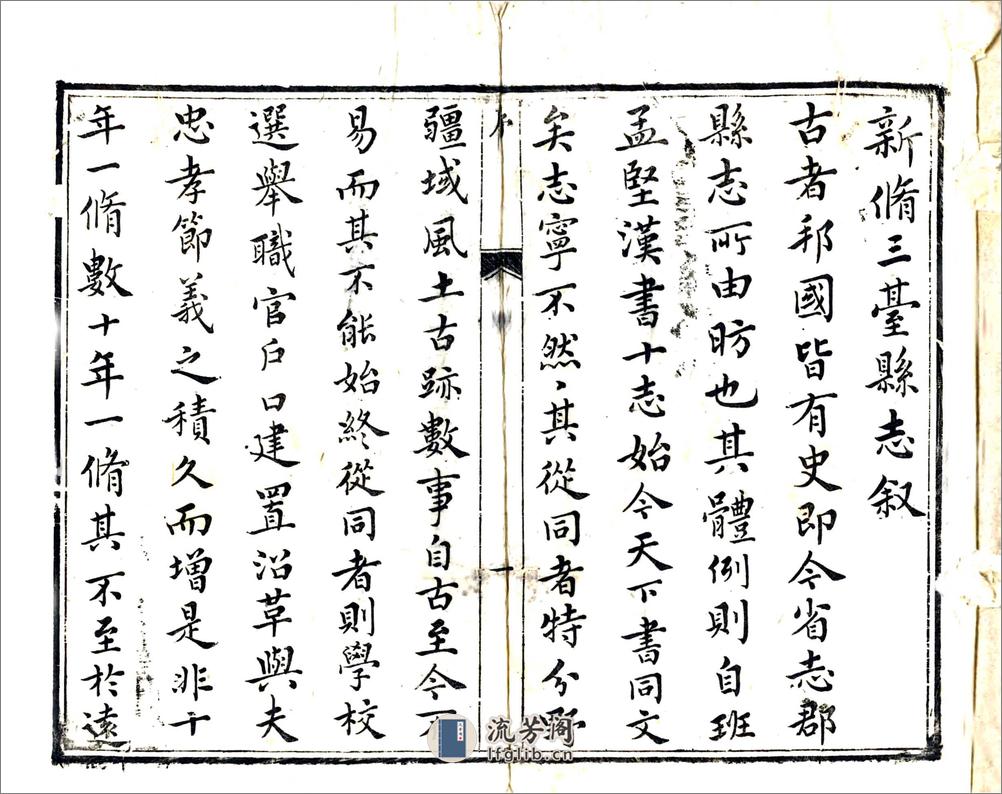 新脩三臺縣志叙
古者邦國皆有史即今省志郡
縣志所由昉也其體例則自班
孟堅漢書十志始今天下書同文
矣志寧不然然其從同者特分野
序
一
疆域風土古跡數事自古至今不
易而其不能始終從同者則學校
選舉職官戶口建置沿革與夫
忠孝節義之積久而增是非十
年一脩數十年一脩其不至於遠
流芳閣
lfglib.cn